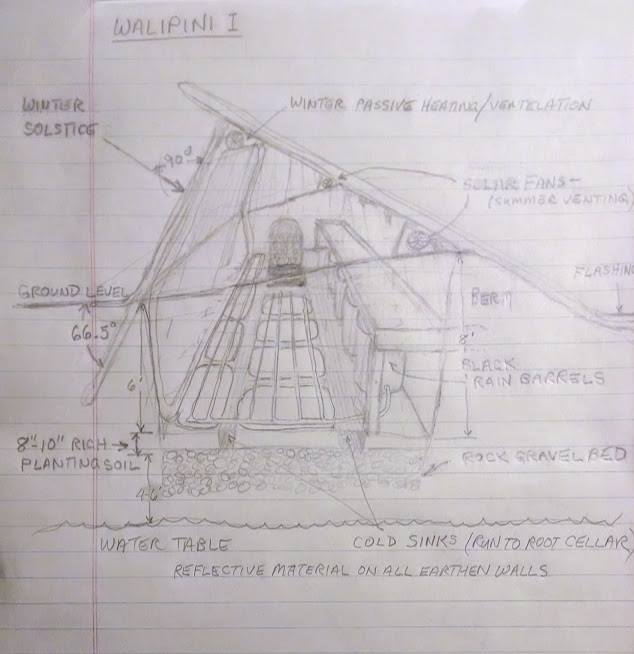 WALIPINI I
WINTER
SOLSTICE
WINTER PASSIVE HEATING/VENTELATION
90°
SOLAR FANS-
(SUMMER VENTING)
GROUND LEVEL
FLASHING
66.5°
BERM
8'
6'
BLACK
RAIN BARRELS
8"-10" RICH
PLANTING SOIL
ROCK GRAVEL BED
4-6'
WATER TABLE
COLD SINKS (RUN TO ROOT CELLAR)
REFLECTIVE MATERIAL ON ALL EARTHEN WALLS